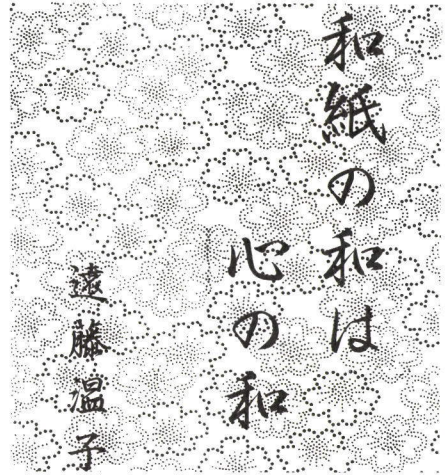 和紙の和は
心の和
遠藤温子